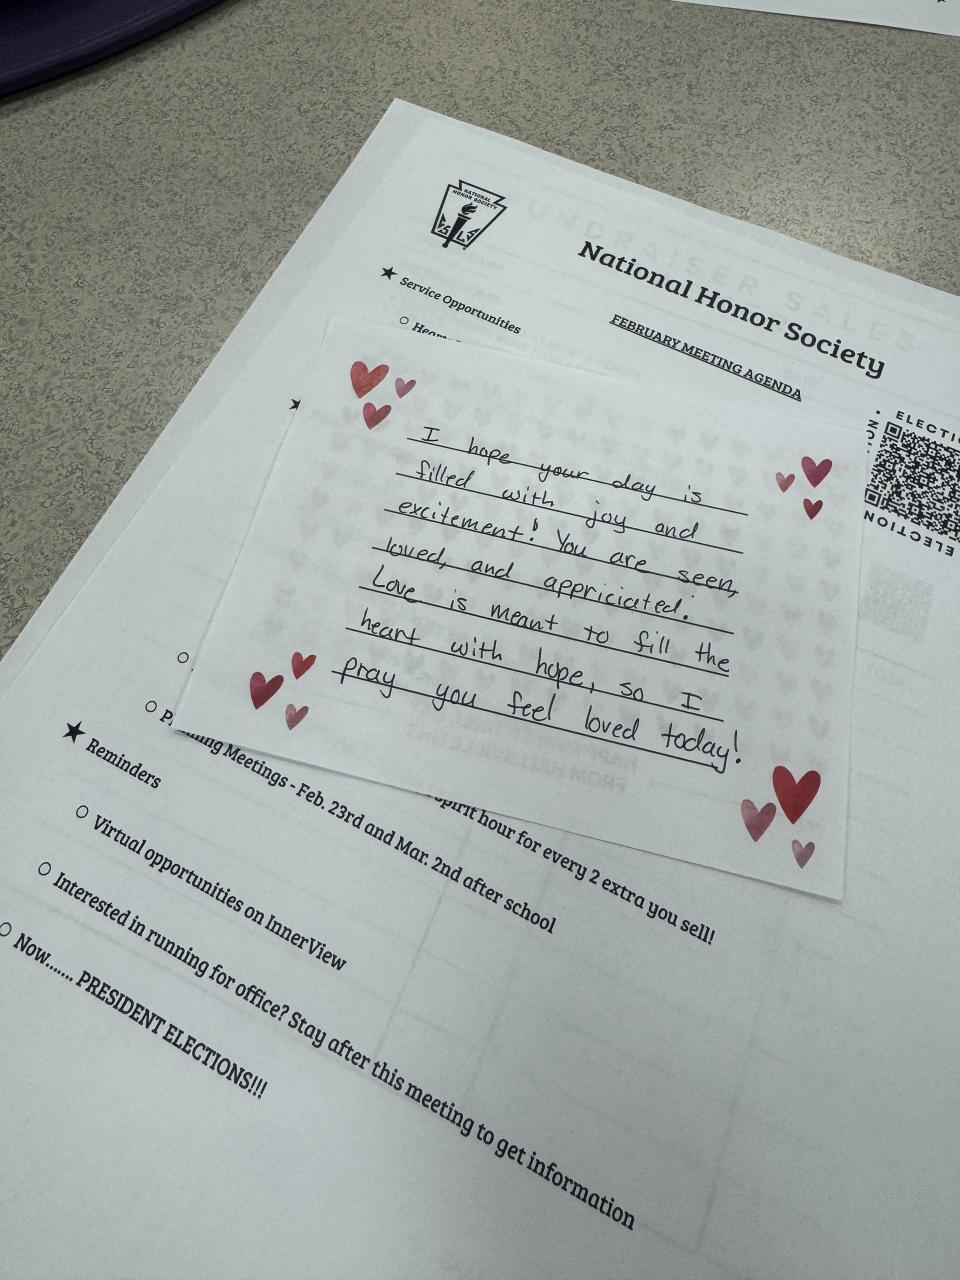 NATIONAL
HONOR SOCIETY
National Honor Society
FEBRUARY MEETING AGENDA
★ Service Opportunities
○
ELECTION
ELECTION
I hope your day is
filled with joy and
excitement! You are seen,
loved, and appriciated!
Love is meant to fill the
heart with hope, so I
pray you feel loved today!
spirit hour for every 2 extra you sell!
○ Meetings - Feb. 23rd and Mar. 2nd after school
★ Reminders
○ Virtual opportunities on InnerView
○ Interested in running for office? Stay after this meeting to get information
○ Now....... PRESIDENT ELECTIONS!!!